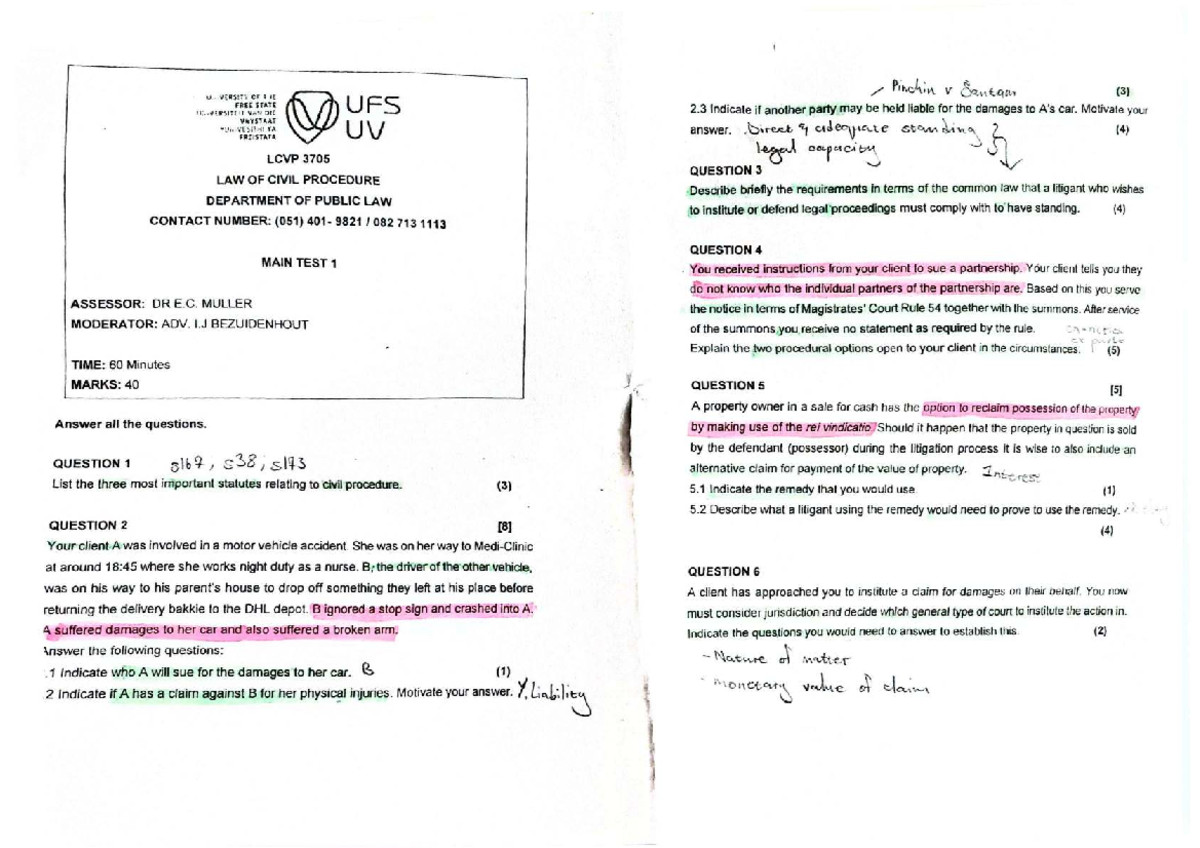 UNIVERSITY OF THE
FREE STATE
UNIVERSITEIT VAN DIE
VRYSTAAT
YUNIVESITHI YA
FREISTATA
UFS
UV
LCVP 3705
LAW OF CIVIL PROCEDURE
DEPARTMENT OF PUBLIC LAW
CONTACT NUMBER: (051) 401- 9821 / 082 713 1113
MAIN TEST 1
ASSESSOR: DR E.C. MULLER
MODERATOR: ADV. I.J BEZUIDENHOUT
TIME: 60 Minutes
MARKS: 40
Answer all the questions.
QUESTION 1 s167, s38, s173
List the three most important statutes relating to civil procedure. (3)
QUESTION 2 [8]
Your client A was involved in a motor vehicle accident. She was on her way to Medi-Clinic
at around 18:45 where she works night duty as a nurse. B, the driver of the other vehicle,
was on his way to his parent's house to drop off something they left at his place before
returning the delivery bakkie to the DHL depot. B ignored a stop sign and crashed into A.
A suffered damages to her car and also suffered a broken arm.
Answer the following questions:
.1 Indicate who A will sue for the damages to her car. B (1)
2 Indicate if A has a claim against B for her physical injuries. Motivate your answer. Y. Liability
Pinchin v Santam (3)
2.3 Indicate if another party may be held liable for the damages to A's car. Motivate your
answer. Direct & adequate standing (4)
legal capacity
QUESTION 3
Describe briefly the requirements in terms of the common law that a litigant who wishes
to institute or defend legal proceedings must comply with to have standing. (4)
QUESTION 4
You received instructions from your client to sue a partnership. Your client tells you they
do not know who the individual partners of the partnership are. Based on this you serve
the notice in terms of Magistrates' Court Rule 54 together with the summons. After service
of the summons you receive no statement as required by the rule.
Explain the two procedural options open to your client in the circumstances. (5)
QUESTION 5 [5]
A property owner in a sale for cash has the option to reclaim possession of the property
by making use of the rei vindicatio. Should it happen that the property in question is sold
by the defendant (possessor) during the litigation process it is wise to also include an
alternative claim for payment of the value of property. Interest
5.1 Indicate the remedy that you would use. (1)
5.2 Describe what a litigant using the remedy would need to prove to use the remedy.
(4)
QUESTION 6
A client has approached you to institute a claim for damages on their behalf. You now
must consider jurisdiction and decide which general type of court to institute the action in.
Indicate the questions you would need to answer to establish this. (2)
- Nature of matter
- Monetary value of claim